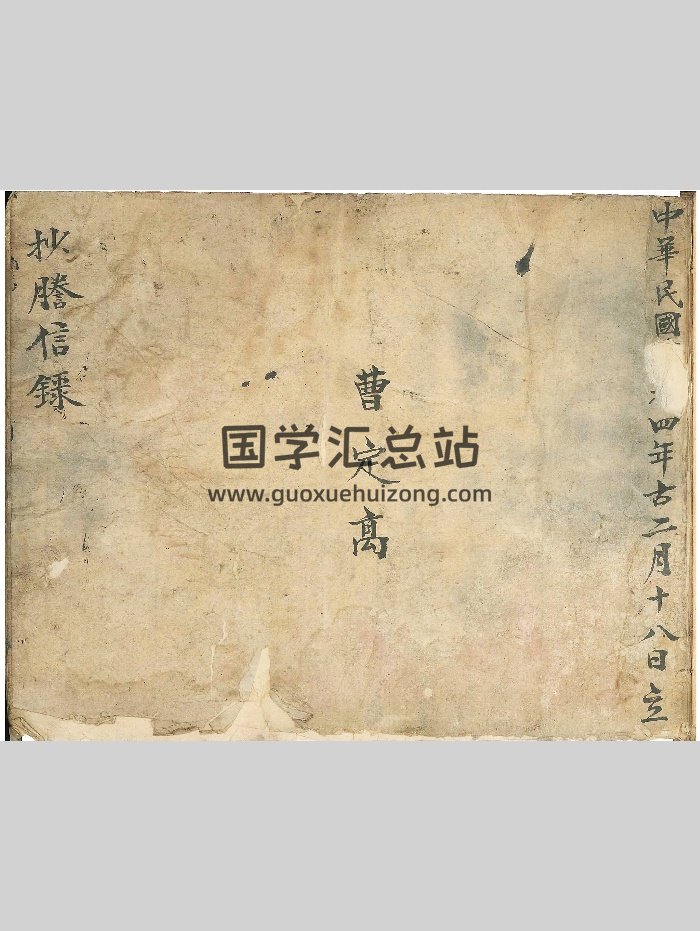 中華民國
四年古二月十八日立
曹定高
抄謄信錄
国学汇总站
www.guoxuehuizong.com